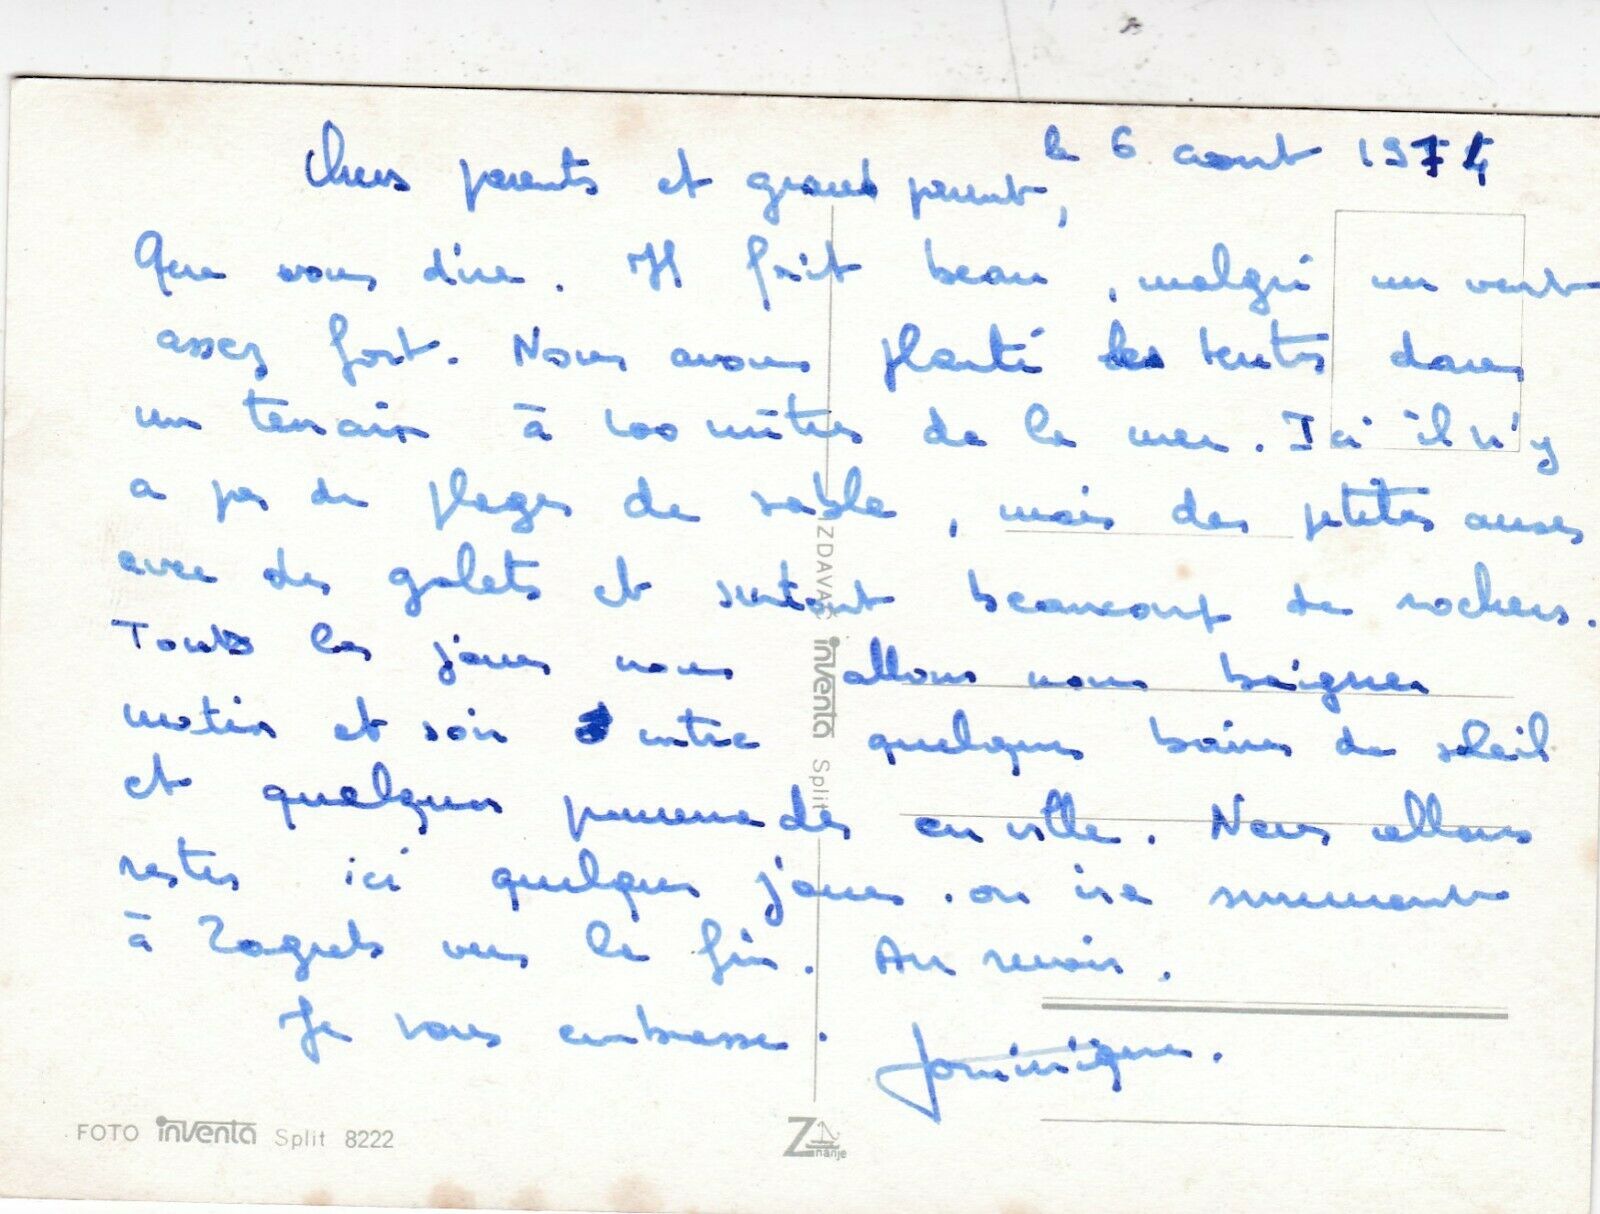 le 6 aout 1974
Chers parents et grand parent,
Que vous dire. Il fait beau, malgré un vent
assez fort. Nous avons planté les tentes dans
un terrain à 100 mètres de la mer. Ici il n'y
a pas de plages de sable, mais des petites anses
avec des galets et surtout beaucoup de rochers.
Touts les jours nous allons nous baigner
matin et soir entre quelques bains de soleil
et quelques promenades en ville. Nous allons
rester ici quelques jours. on ira surement
à Zagreb vers la fin. Au revoir.
Je vous embrasse. Dominique.
IZDAVAČ inventa Split
FOTO inventa Split 8222
Znanje